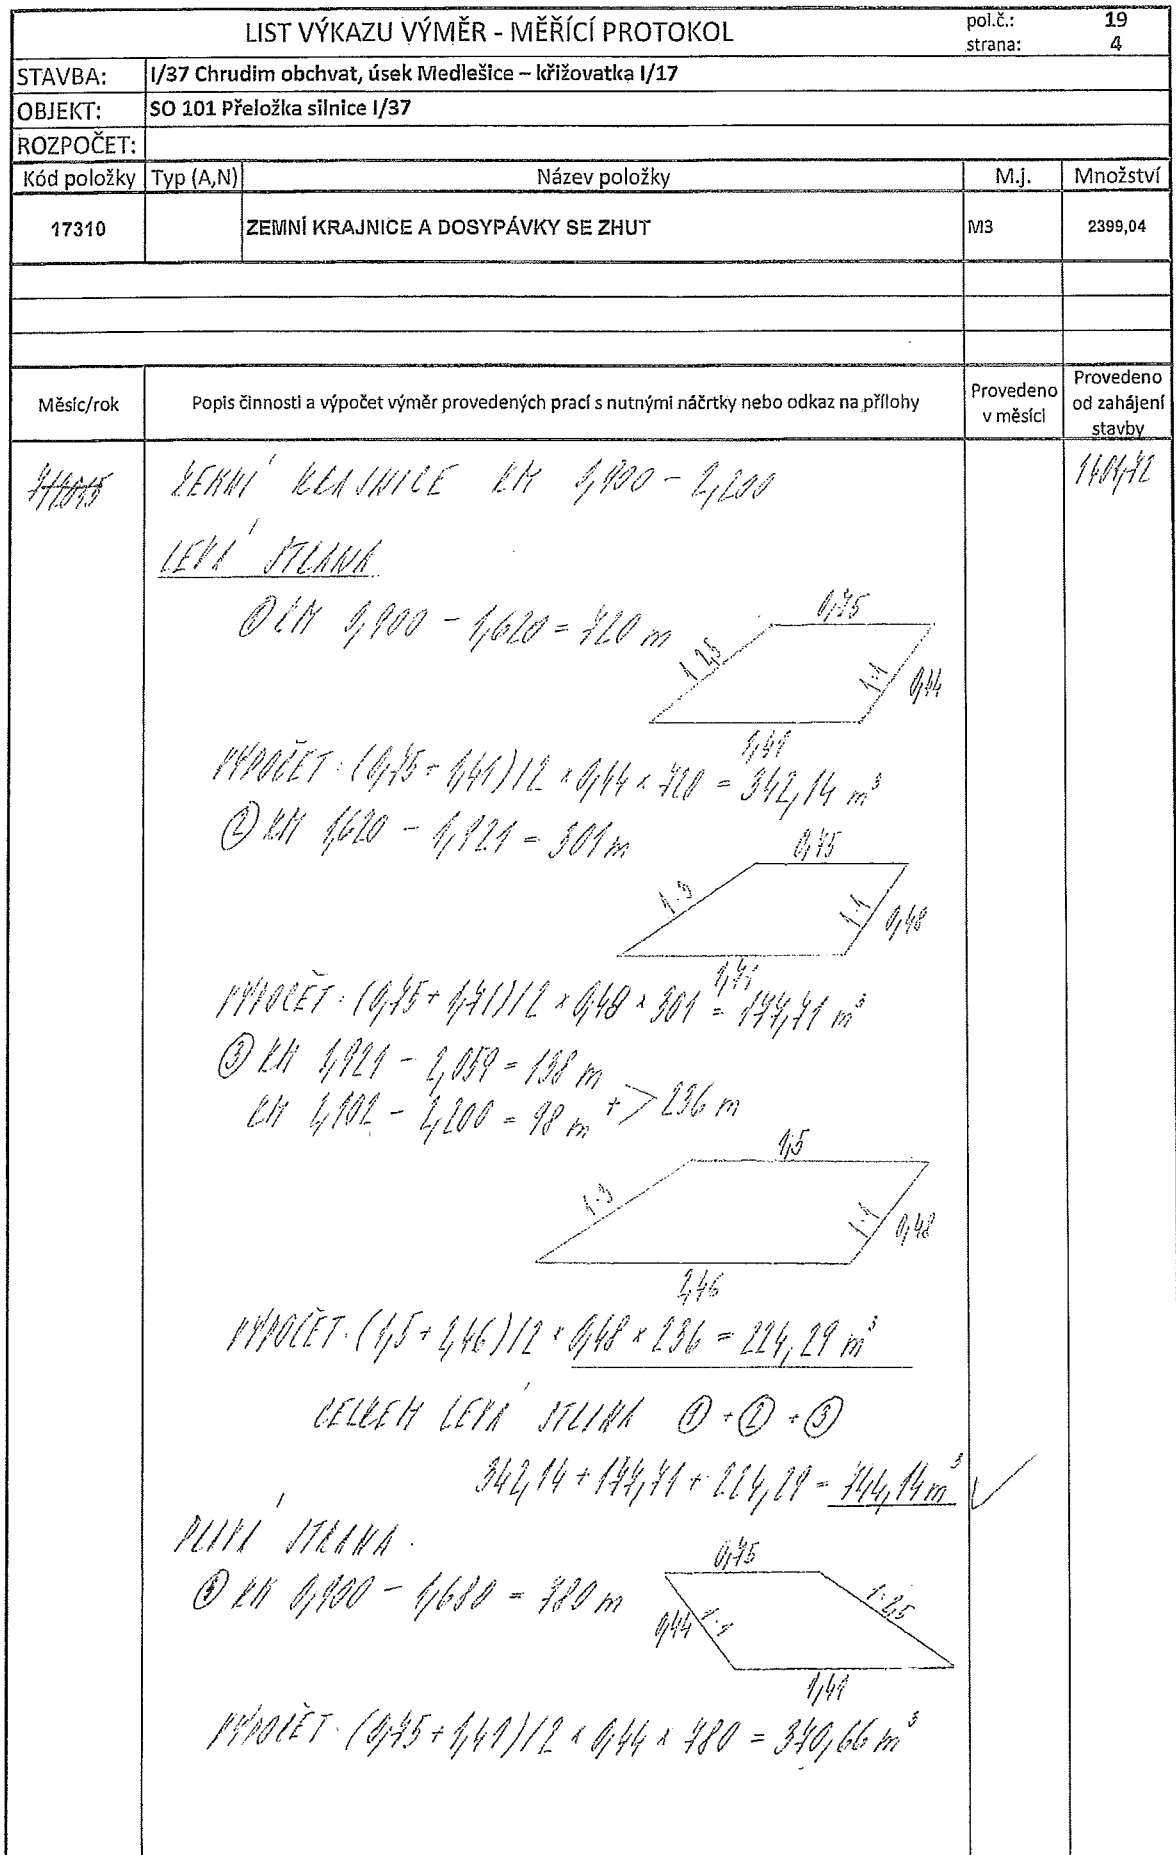 LIST VÝKAZU VÝMĚR - MĚŘÍCÍ PROTOKOL
pol.č.: 19
strana: 4
STAVBA: I/37 Chrudim obchvat, úsek Medlešice – křižovatka I/17
OBJEKT: SO 101 Přeložka silnice I/37
ROZPOČET:
Kód položky Typ (A,N) Název položky M.j. Množství
17310 ZEMNÍ KRAJNICE A DOSYPÁVKY SE ZHUT M3 2399,04
Měsíc/rok Popis činnosti a výpočet výměr provedených prací s nutnými náčrtky nebo odkaz na přílohy Provedeno v měsíci Provedeno od zahájení stavby
ZEMNÍ KRAJNICE KM 0,900 - 2,200
LEVÁ STRANA
① KM 0,900 - 1,620 = 720 m
0,75
1:2,5
1:1
0,44
1,41
VÝPOČET: (0,75 + 1,41)/2 × 0,44 × 720 = 342,14 m³
② KM 1,620 - 1,921 = 301 m
0,75
1:3
1:1
0,48
1,71
VÝPOČET: (0,75 + 1,71)/2 × 0,48 × 301 = 177,71 m³
③ KM 1,921 - 2,059 = 138 m
KM 2,102 - 2,200 = 98 m + > 236 m
1,5
1:3
1:1
0,48
2,46
VÝPOČET: (1,5 + 2,46)/2 × 0,48 × 236 = 224,29 m³
CELKEM LEVÁ STRANA ① + ② + ③
342,14 + 177,71 + 224,29 = 744,14 m³ ✓
PRAVÁ STRANA
KM 0,900 - 1,680 = 780 m
0,75
1:2,5
0,44
1:1
1,41
VÝPOČET: (0,75 + 1,41)/2 × 0,44 × 780 = 370,66 m³